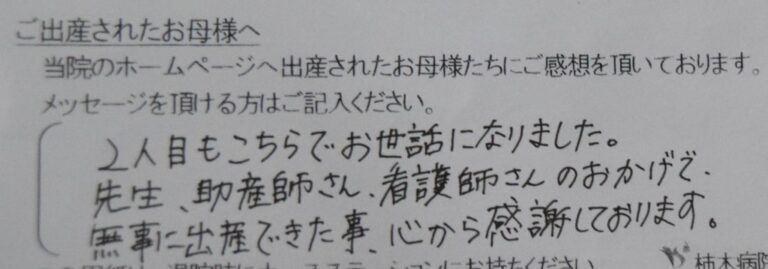 ご出産されたお母様へ
当院のホームページへ出産されたお母様たちにご感想を頂いております。
メッセージを頂ける方はご記入ください。
2人目もこちらでお世話になりました。
先生、助産師さん、看護師さんのおかげで、
無事に出産できた事、心から感謝しております。
退院時にナースステーションにお持ちください
柿木病院